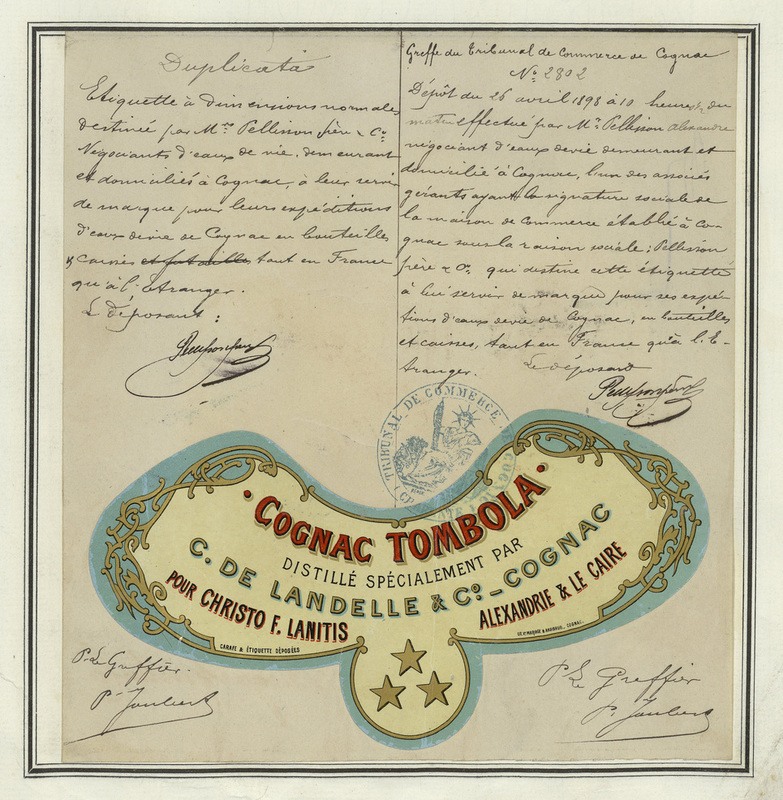 Duplicata
Etiquette à dimensions normales
destinée par Mrs Pellisson père & Co
Négociants d'eaux de vie, demeurant
et domiciliés à Cognac, à leur servir
de marque pour leurs expéditions
d'eaux de vie de Cognac en bouteilles
& caisses et futailles, tant en France
qu'à l'Etranger.
Le déposant :
Greffe du Tribunal de Commerce de Cognac
No 2802
Dépôt du 26 avril 1898 à 10 heures du
matin effectué par Mr Pellisson Alexandre
négociant d'eaux de vie demeurant et
domicilié à Cognac, l'un des associés
gérants ayant la signature sociale de
la maison de Commerce établie à Co-
gnac sous la raison sociale ; Pellisson
père & Co. qui destine cette étiquette
à lui servir de marque pour ses expédi-
tions d'eaux de vie de Cognac, en bouteilles
et caisses, tant en France qu'à l'E-
tranger. Le déposant
TRIBUNAL DE COMMERCE DE COGNAC
COGNAC TOMBOLA
DISTILLÉ SPÉCIALEMENT PAR
C. DE LANDELLE & Co. – COGNAC
POUR CHRISTO F. LANITIS
ALEXANDRIE & LE CAIRE
CARAFE & ÉTIQUETTE DÉPOSÉES
COGNAC.
P. Le Greffier.
P. Joubert
P. Le Greffier
P. Joubert